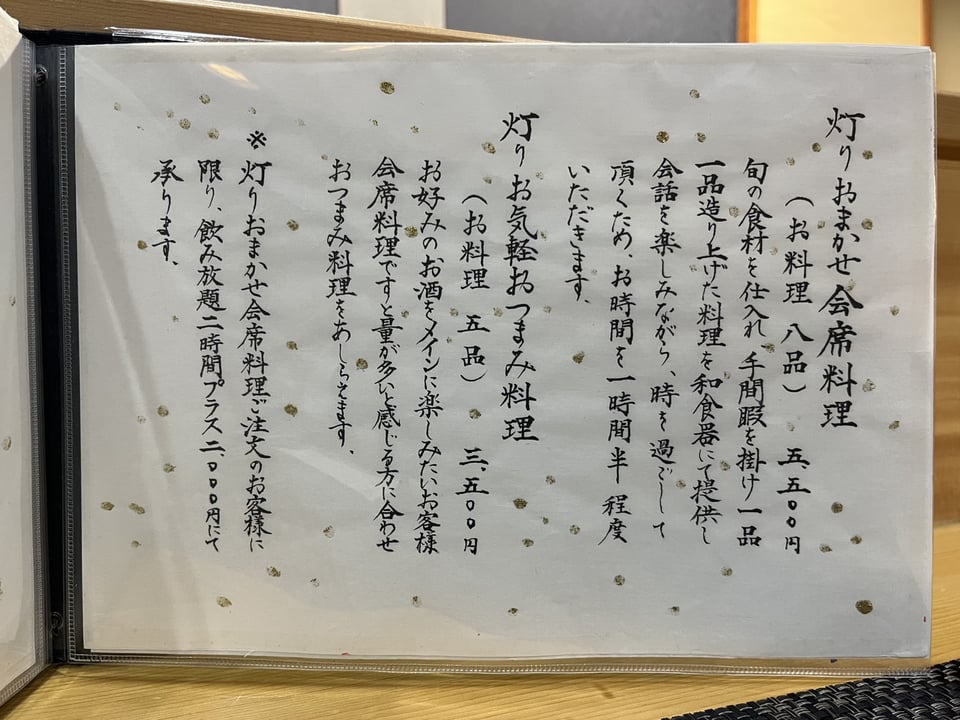 灯りおまかせ会席料理
（お料理 八品） 五、五〇〇円
旬の食材を仕入れ 手間暇を掛け一品
一品造り上げた料理を和食器にて提供し
会話を楽しみながら、時を過ごして
頂くため、お時間を一時間半 程度
いただきます。
灯りお気軽おつまみ料理
（お料理 五品） 三、五〇〇円
お好みのお酒をメインに楽しみたいお客様
会席料理ですと量が多いと感じる方に合わせ
おつまみ料理をあしらえます。
※灯りおまかせ会席料理ご注文のお客様に
限り、飲み放題二時間プラス二、〇〇〇円にて
承ります。